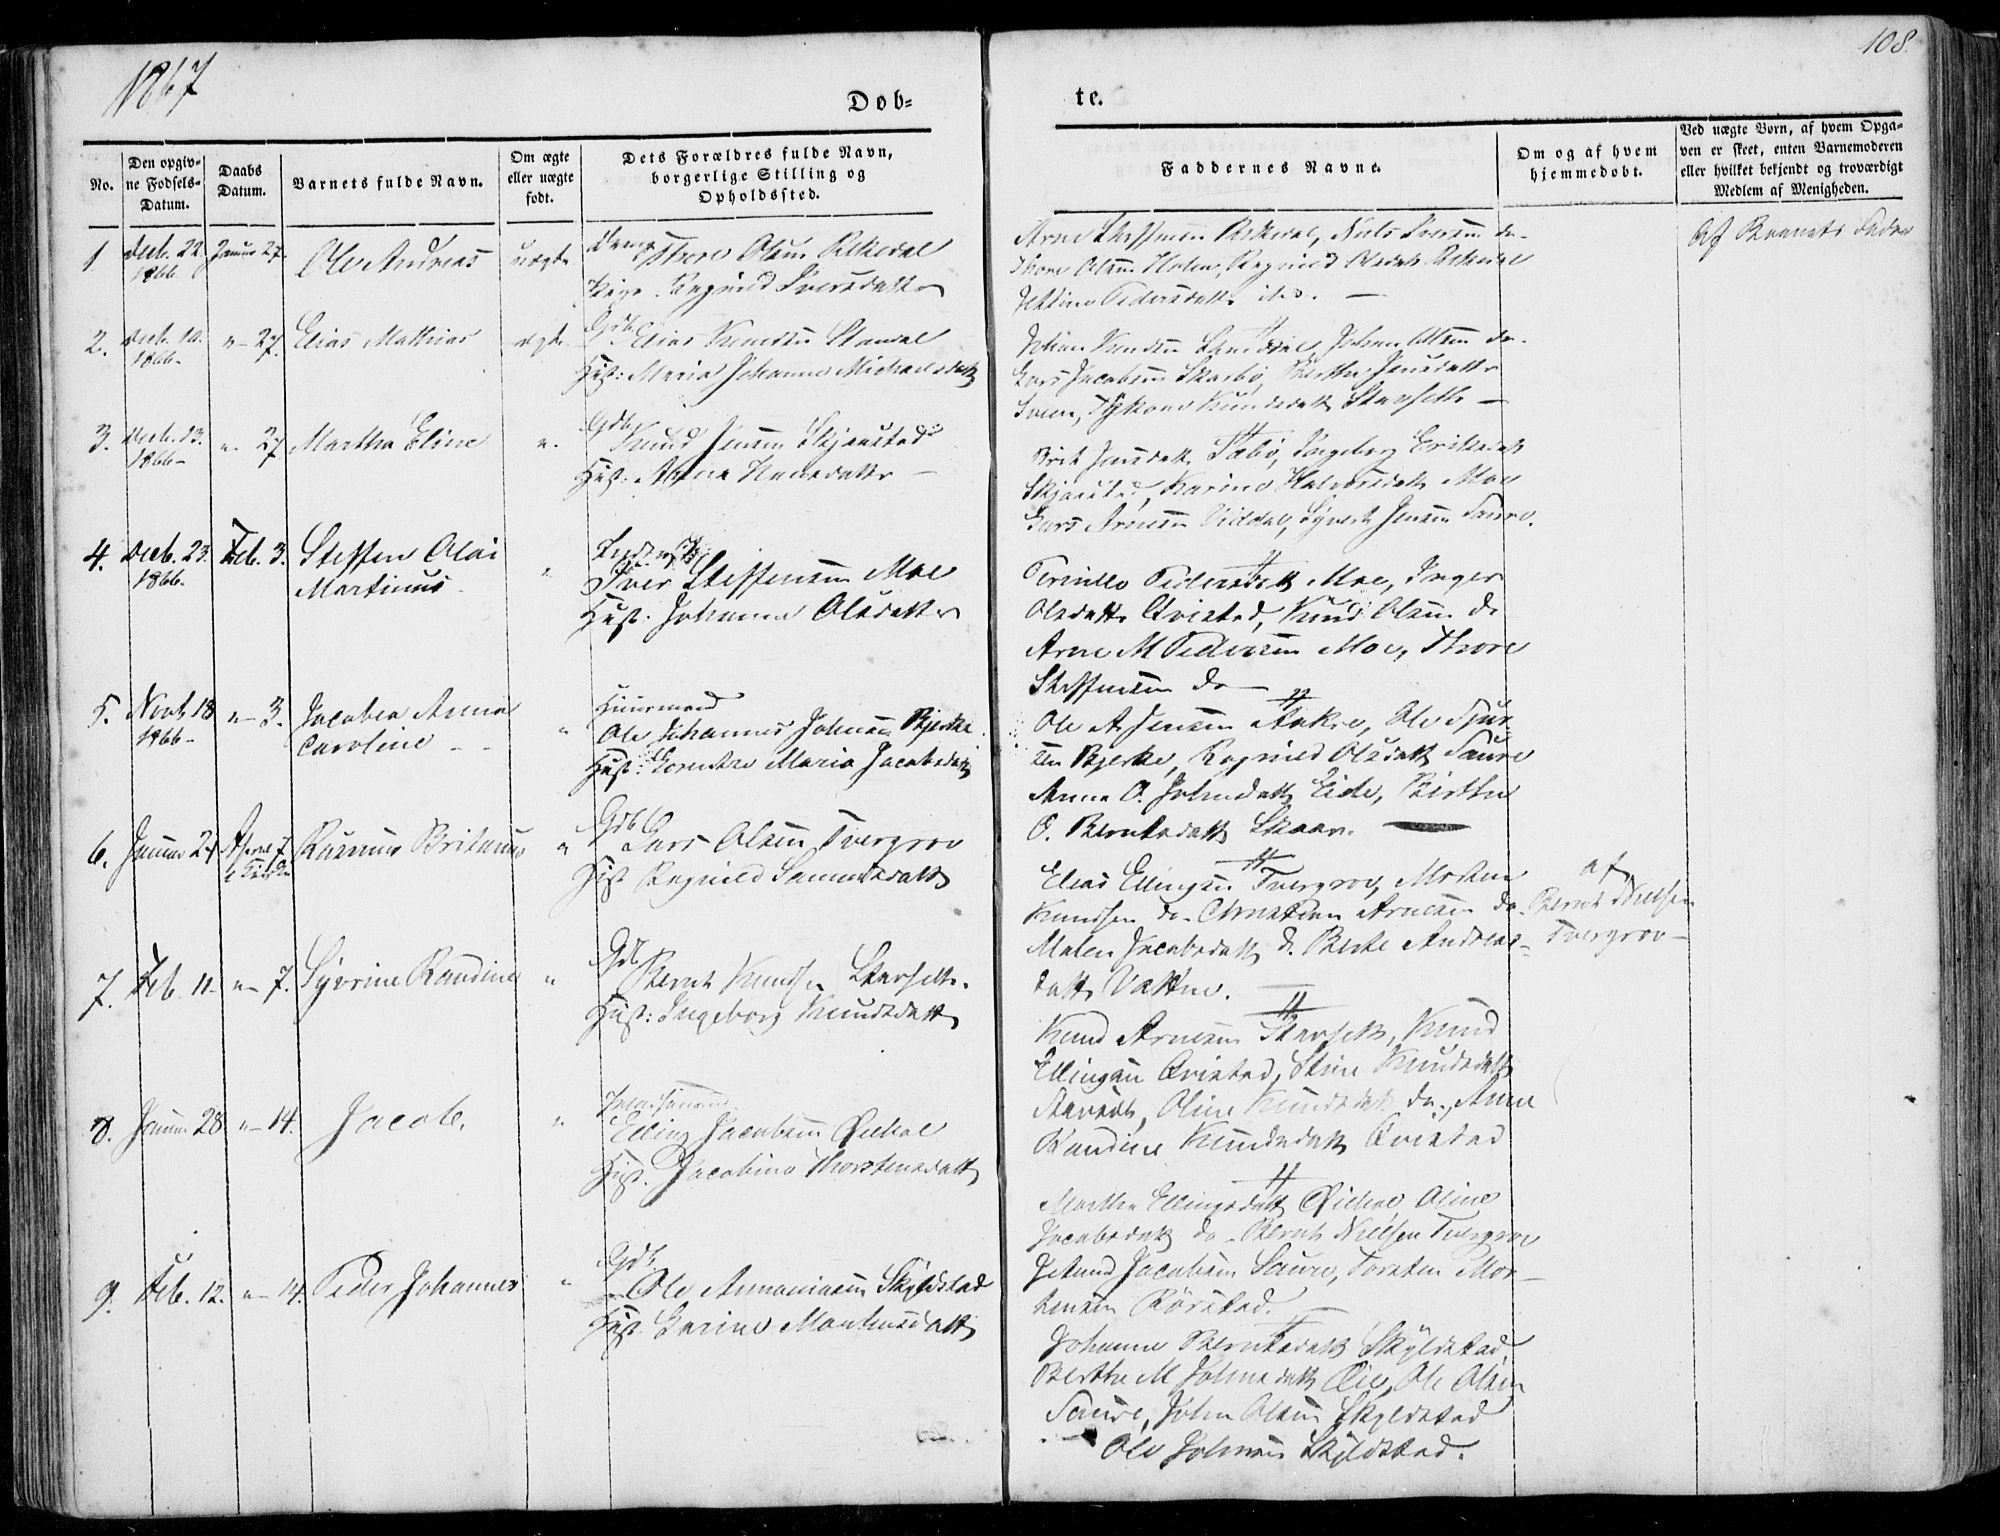 1867
108.
Døb-
te.
No.
Den opgiv-
ne Fødsels-
Datum.
Daabs
Datum.
Barnets fulde Navn.
Om ægte
eller uægte
født.
Dets Forældres fulde Navn,
borgerlige Stilling og
Opholdssted.
Faddernes Navne.
Om og af hvem
hjemmedøbt.
Ved uægte Børn, af hvem Opga-
ven er skeet, enten Barnemoderen
eller hvilket bekjendt og troværdigt
Medlem af Menigheden.
1
Decb. 22
1866
Januar 27.
Ole Andreas
uægte
Thore Olsen Rekkedal
Pige Ragnild Iversdatter
Arne Steffensen Rekkedal, Niels Iversen do-
Thore Olsen Holen, Ragnild Olsdatt Rekkedal
Pedersdatt. ibd. —
Af Barnets Fader
2.
Decb. 10.
1866-
"- 27.
Elias Mathias
ægte
Gdb. Elias Knudsen Standal
Hust: Maria Johanne Michaelsdatt
Johan Knudsen Standal, Johan Olsen do-
Lars Jacobsen Skorbø, Berthe Jensdatter
Knudsdatt Stavseth —
3.
Decb. 13.
1866-
"- 27
Martha Eline
".
Gdb.
Knud Jensen Skjaastad
Hust. Anne Hansdatter —
Brit Jensdatt. Sæbø, Ingeborg Eriksdatt
Skjaastad, Karine Halvorsdatt Moe
Lars Arnesen Viddal, Syvert Jensen Saure.
4.
Decb. 23.
1866.
Feb. 3.
Steffen Olai
Martinus
"
Iver Steffensen Moe
Hust. Johanne Olsdatter
Pernille Pedersdatt Moe, Inger
Olsdatter Qvistad, Knud Olsen do
Arne M Pedersen Moe, Thore
Steffensen do —
5.
Novb 18
1866-
"- 3.
Jacobea Anna
Caroline - -
"
Huusmand
Ole Johannes Johnsen Bjerke
Hust: Lorentze Maria Jacobsdatt
Ole A Jensen Aakre, Ole Sjur-
sen Bjerke, Ragnild Olsdatt Saure
Anne O. Johnsdatt Eide, Birthe
O. Berntsdatt Skaar. —
6.
Januar 27
April 7
Rasmus Britanus
"
Gdb Lars Olsen Tvergrov
Hust Ragnild Samuelsdatt
Elias Ellingsen Tvergrov, Morten
Knudsen do- Christian Arnesen do-
Malen Jacobsdatt do Berte Andreas-
datt Vatne.
af
Bernt Nielsen
Tvergrov —
7.
Feb. 11.
"- 7.
Syverine Randine
"
Gdb
Bernt Knudsen Stavseth.
Hust: Ingeborg Knudsdatt
Knud Arnesen Stavseth, Knud
Ellingsen Qvistad, Stine Knudsdatt
Oline Knudsdatt do., Anne
Randine Knudsdatt Qvistad
8.
Januar 28
"- 14.
Jacob.
"
Elling Jacobsen
Hust. Jacobine Thorstensdatt
Marthe Ellingsdatt Oline
Jacobsdatt do - Bernt Nielsen Tvergrov
Jetmund Jacobsen Saure, Torsten Mor-
tensen Rørstad. —
9.
Feb. 12.
"- 14.
Peder Johannes
"
Gdb.
Ole Annaniasen Skyldstad
Hust Karine Monthusdatt
Johanne Berntsdatt Skyldstad
Berthe M Johnsdatt Øie, Ole Olsen
Saure, John Olsen Skyldstad
Ole Johnsen Skyldstad.